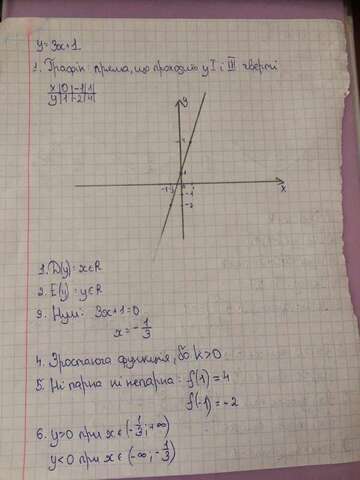 y=3x+1
1. Графік пряма, що проходить у I і III чверті
x|0|-1|1|
y|1|-2|4|
y
4
1
-1 1
x
-1
-2
1. D(y): x∈R
2. E(y): y∈R
3. Нулі: 3x+1=0
x=-1/3
4. Зростаюча функція, бо k>0
5. Ні парна ні непарна: f(1)=4
f(-1)=-2
6. y>0 при x∈(-1/3;+∞)
y<0 при x∈(-∞;-1/3)